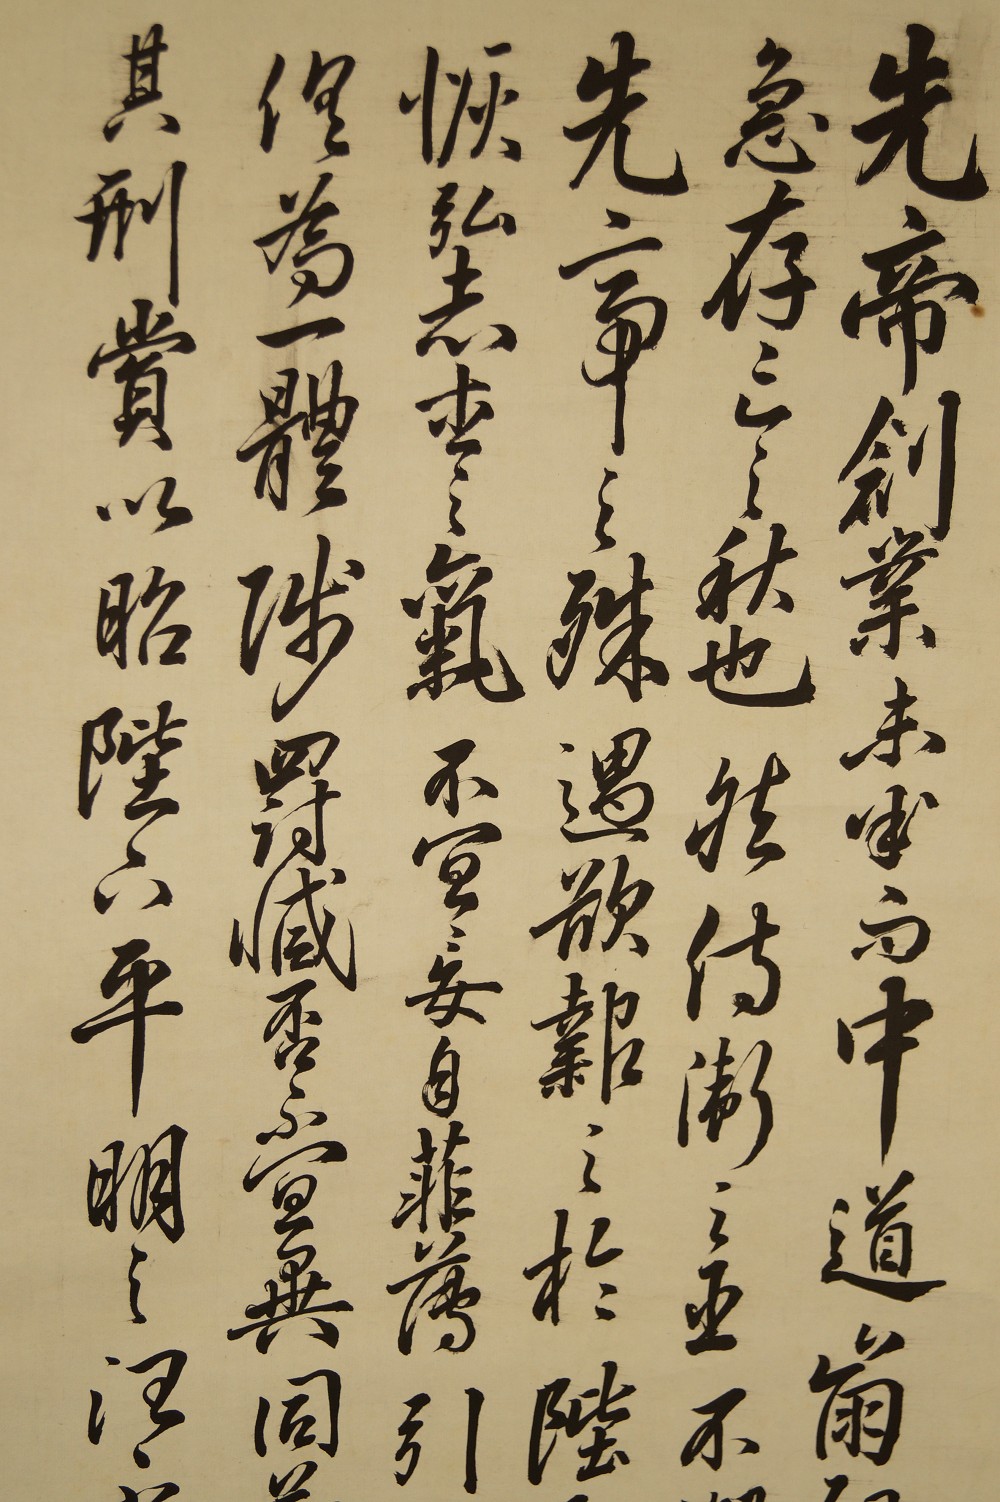 先帝創業未半而中道崩
急存亡之秋也然侍衛之臣不
先帝之殊遇欲報之於陛
恢弘志士之氣不宜妄自菲薄引
俱為一體陟罰臧否不宜異同
其刑賞以昭陛下平明之治